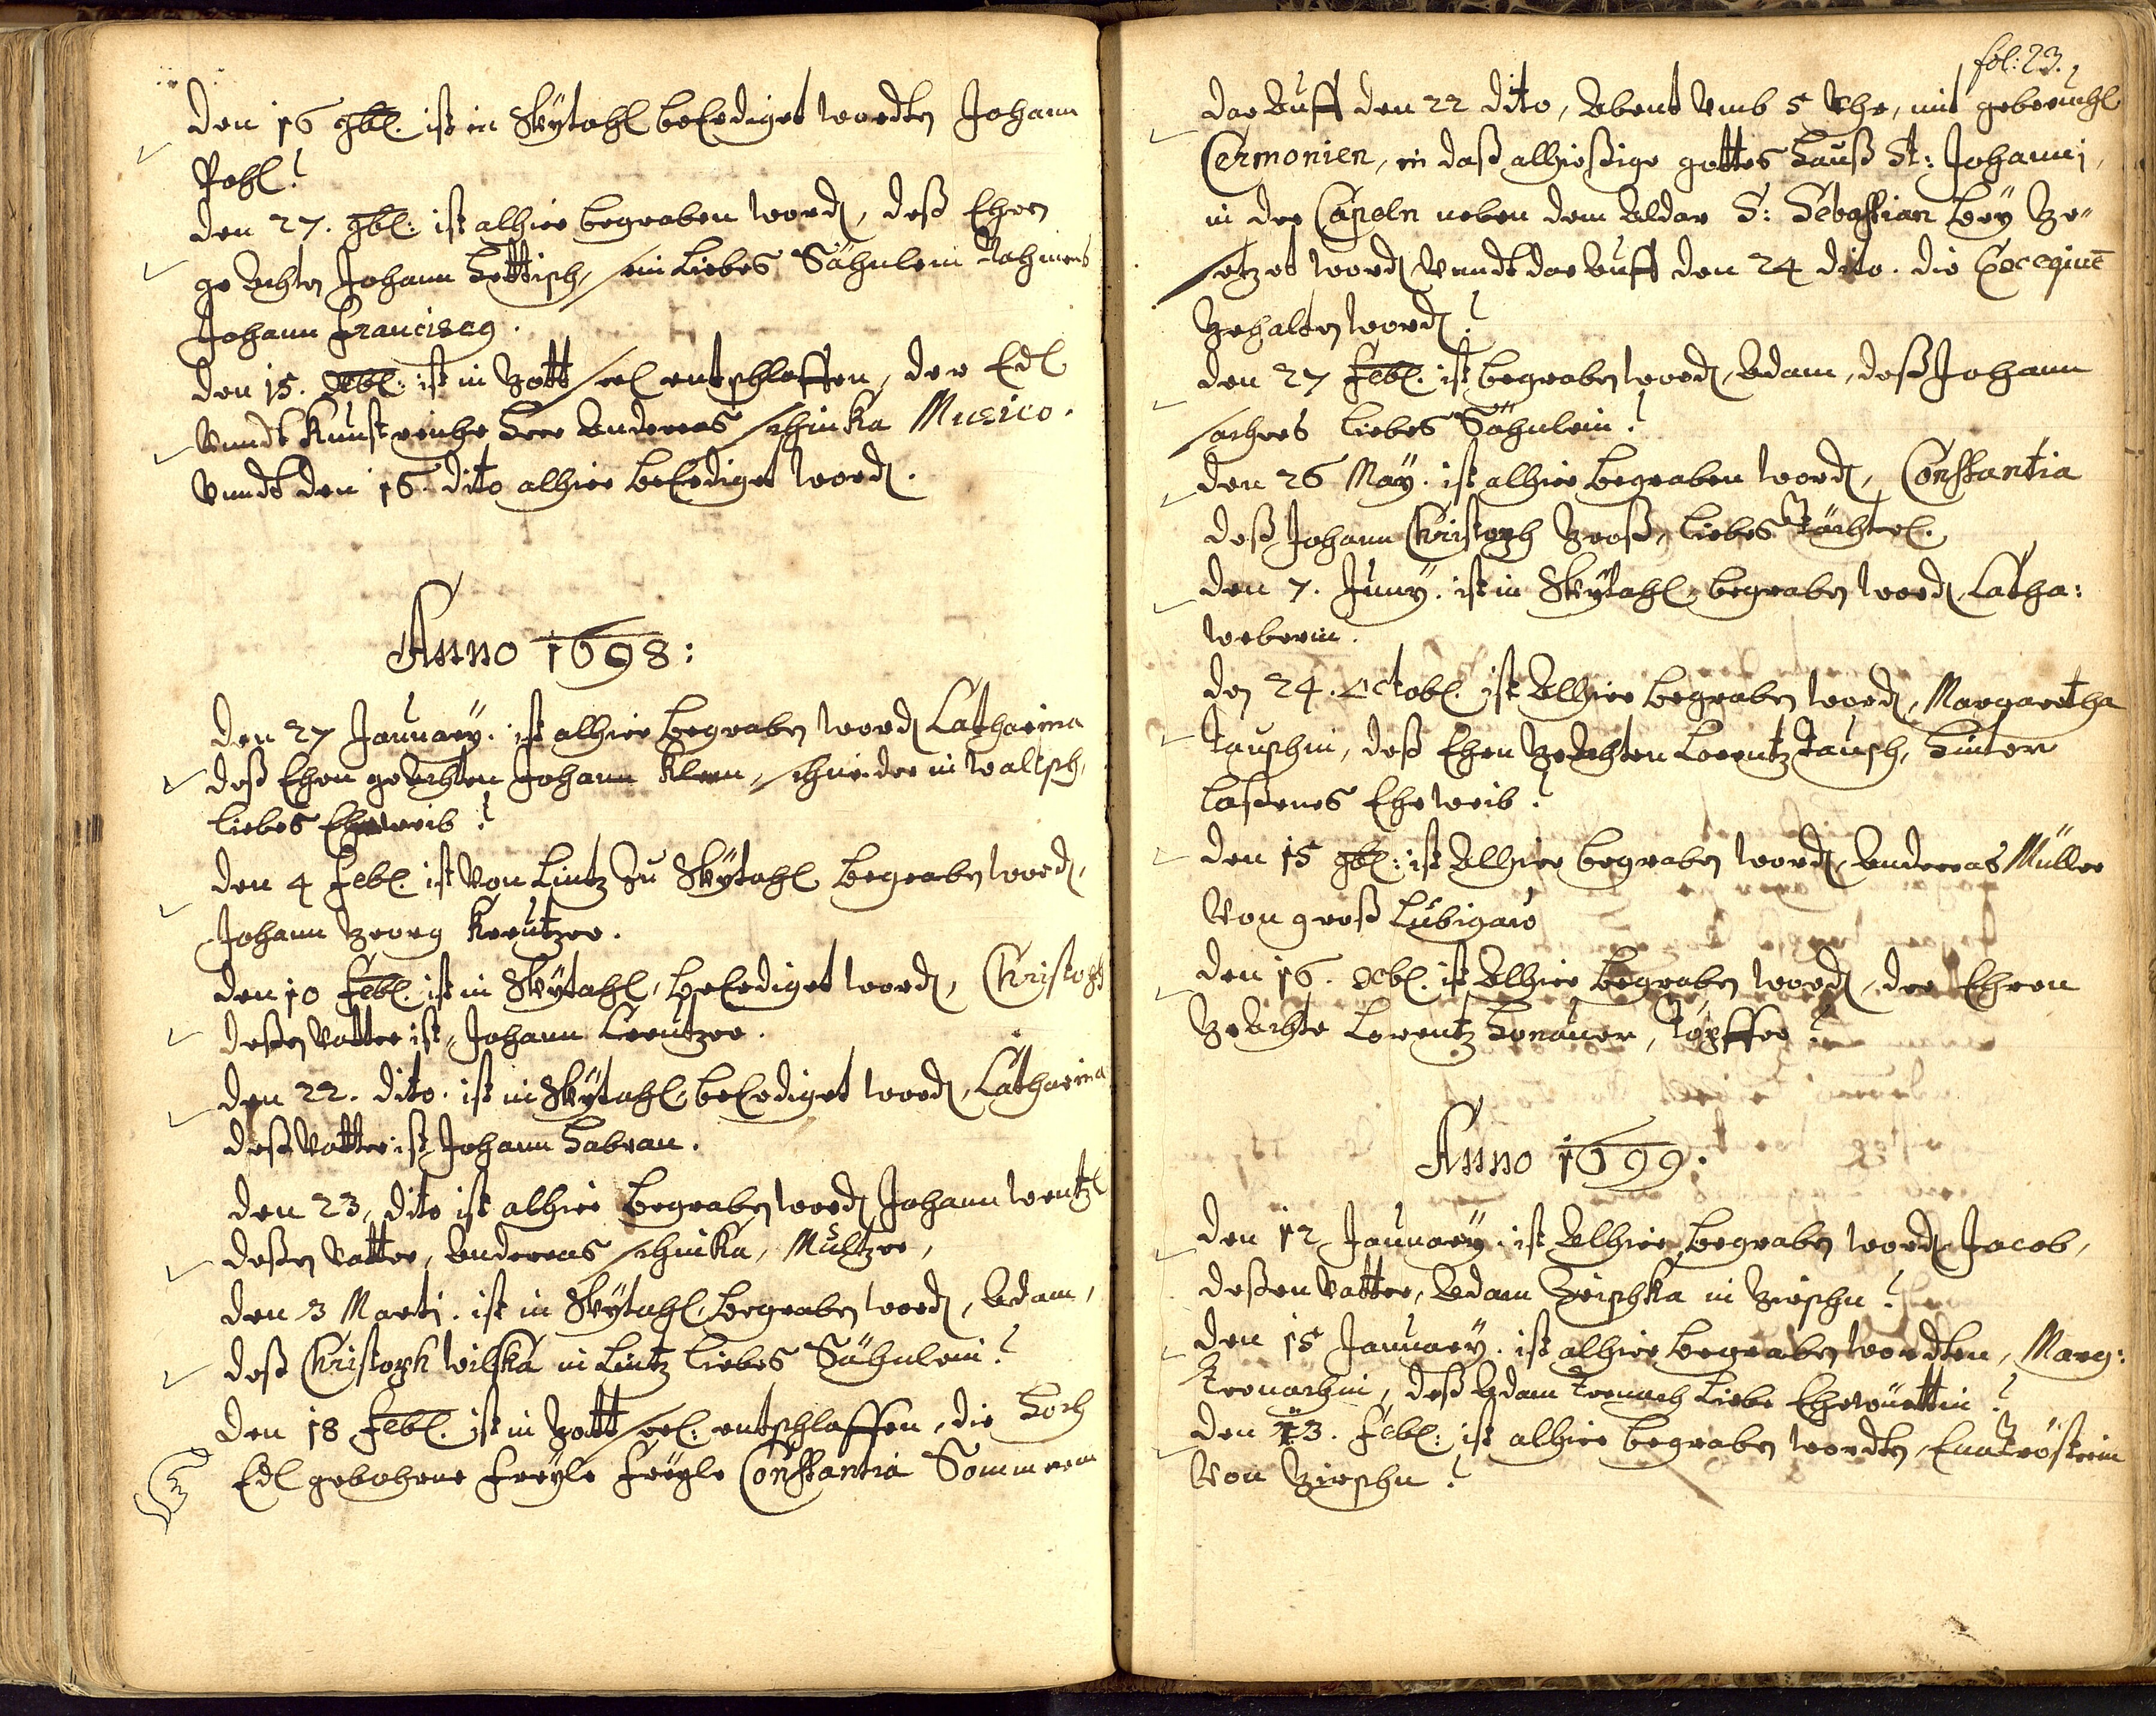 Den 16 9bl. ist in Skytahl beErdiget wordten Johann
Pohl.
Den 27. 9bl: ist alhier begraben word, deß Ehren
ge Achten Johann Hettisch, sein Liebes Söhnlein Nahmens
Johann Franciscg.
Den 15. Xbl: ist in Gott seel entschlaffen, der Edl
Vnndt Kunst reiche Herr Andereas schinka Musico.
Vnndt den 16. dito alhier beErdiget word.
Anno 1698:
Den 27 January. ist alhier begraben word Catharina
deß Ehren geAchten Johann Klem, schneider in Waltsch,
liebes Eheweib
Den 4 Febl. ist Von Lintz Zu Skytahl begraben word,
Johann Georg Kreutzer.
Den 10 Febl. ist in Skytahl, beErdiget word, Christoph
deßen Vatter ist, Johann Creutzer.
Den 22. dito. ist in Skytahl, beErdiget word, Catharina
deß Vatter ist Johann Habran.
Den 23, dito ist alhier begraben word Johann Wentzl
deßen Vatter, Andereas schinka, Mültzer,
Den 3 Marti. ist in Skytahl, begraben word, Adam,
deß Christoph Wilska in Lintz liebes Söhnlein
Den 18 Febl. ist in Gott seel: entschlaffen, die Hoch
Edl gebohrne Freyle Freyle Constantia Sommerin
fol: 23.
dar Auff den 22 dito, Abent Vmb 5 Vhr, mit gebreuchl
Cermonien, in daß alhießige gottes Hauß St: Johanni,
in der Capeln neben dem Aldar S: Sebastian bey Ge-
setzet word, Vnndt dar Auff den 24 dito. die Exequiē
Gehalten word
Den 27 Febl. ist begraben word, Adam, deß Johann
sachers liebes Söhnlein
Den 26 May. ist alhier begraben word, Constantia
deß Johann Christoph Groß, liebes Töchterl.
Den 7. Juny. ist in Skytahl, begraben word, Catha:
Weberin.
Den 24. Octobl. ist Alhier begraben word, Margaretha
Tauschin, deß Ehren GeAchten Lorentz Tausch, Hinter
laßenes Eheweib
Den 15 9bl: ist Alhier begraben word, Andereas Müller
Von groß Lubigau
Den 16. Xbl. ist Alhier begraben word, der Ehren
GeAchte Lorentz Honauer, Töpffer
Anno 1699.
Den 12 January. ist Alhier begraben word Jacob,
deßen Vatter, Adam Zrischka in Gieschu
Den 15 January. ist alhier begraben wordten, Marg:
Tronachin, deß Adam Tronach Liebe Ehewürttin
Den 13. Febl: ist alhier begraben wordten, Eua Trösterin
Von Gieschu